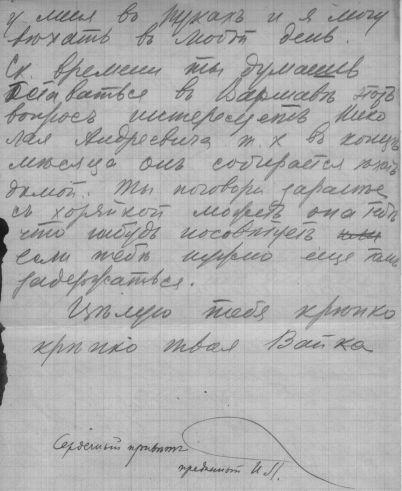 у меня въ рукахъ и я могу
въѣхать въ любой день.
Ск. времени ты думаешь
оставаться въ Варшавѣ этотъ
вопросъ интересуетъ Нико
лая Андреевича т. к въ концѣ
мѣсяца онъ собирается ѣхать
домой. Ты поговори заранѣе
съ хозяйкой можетъ она тебѣ
что нибудь посовѣтуетъ
если тебѣ нужно еще тамъ
задержаться.
Цѣлую тебя крѣпко
крѣпко твоя Вайка
Сердечный привѣтъ
преданный И.П.